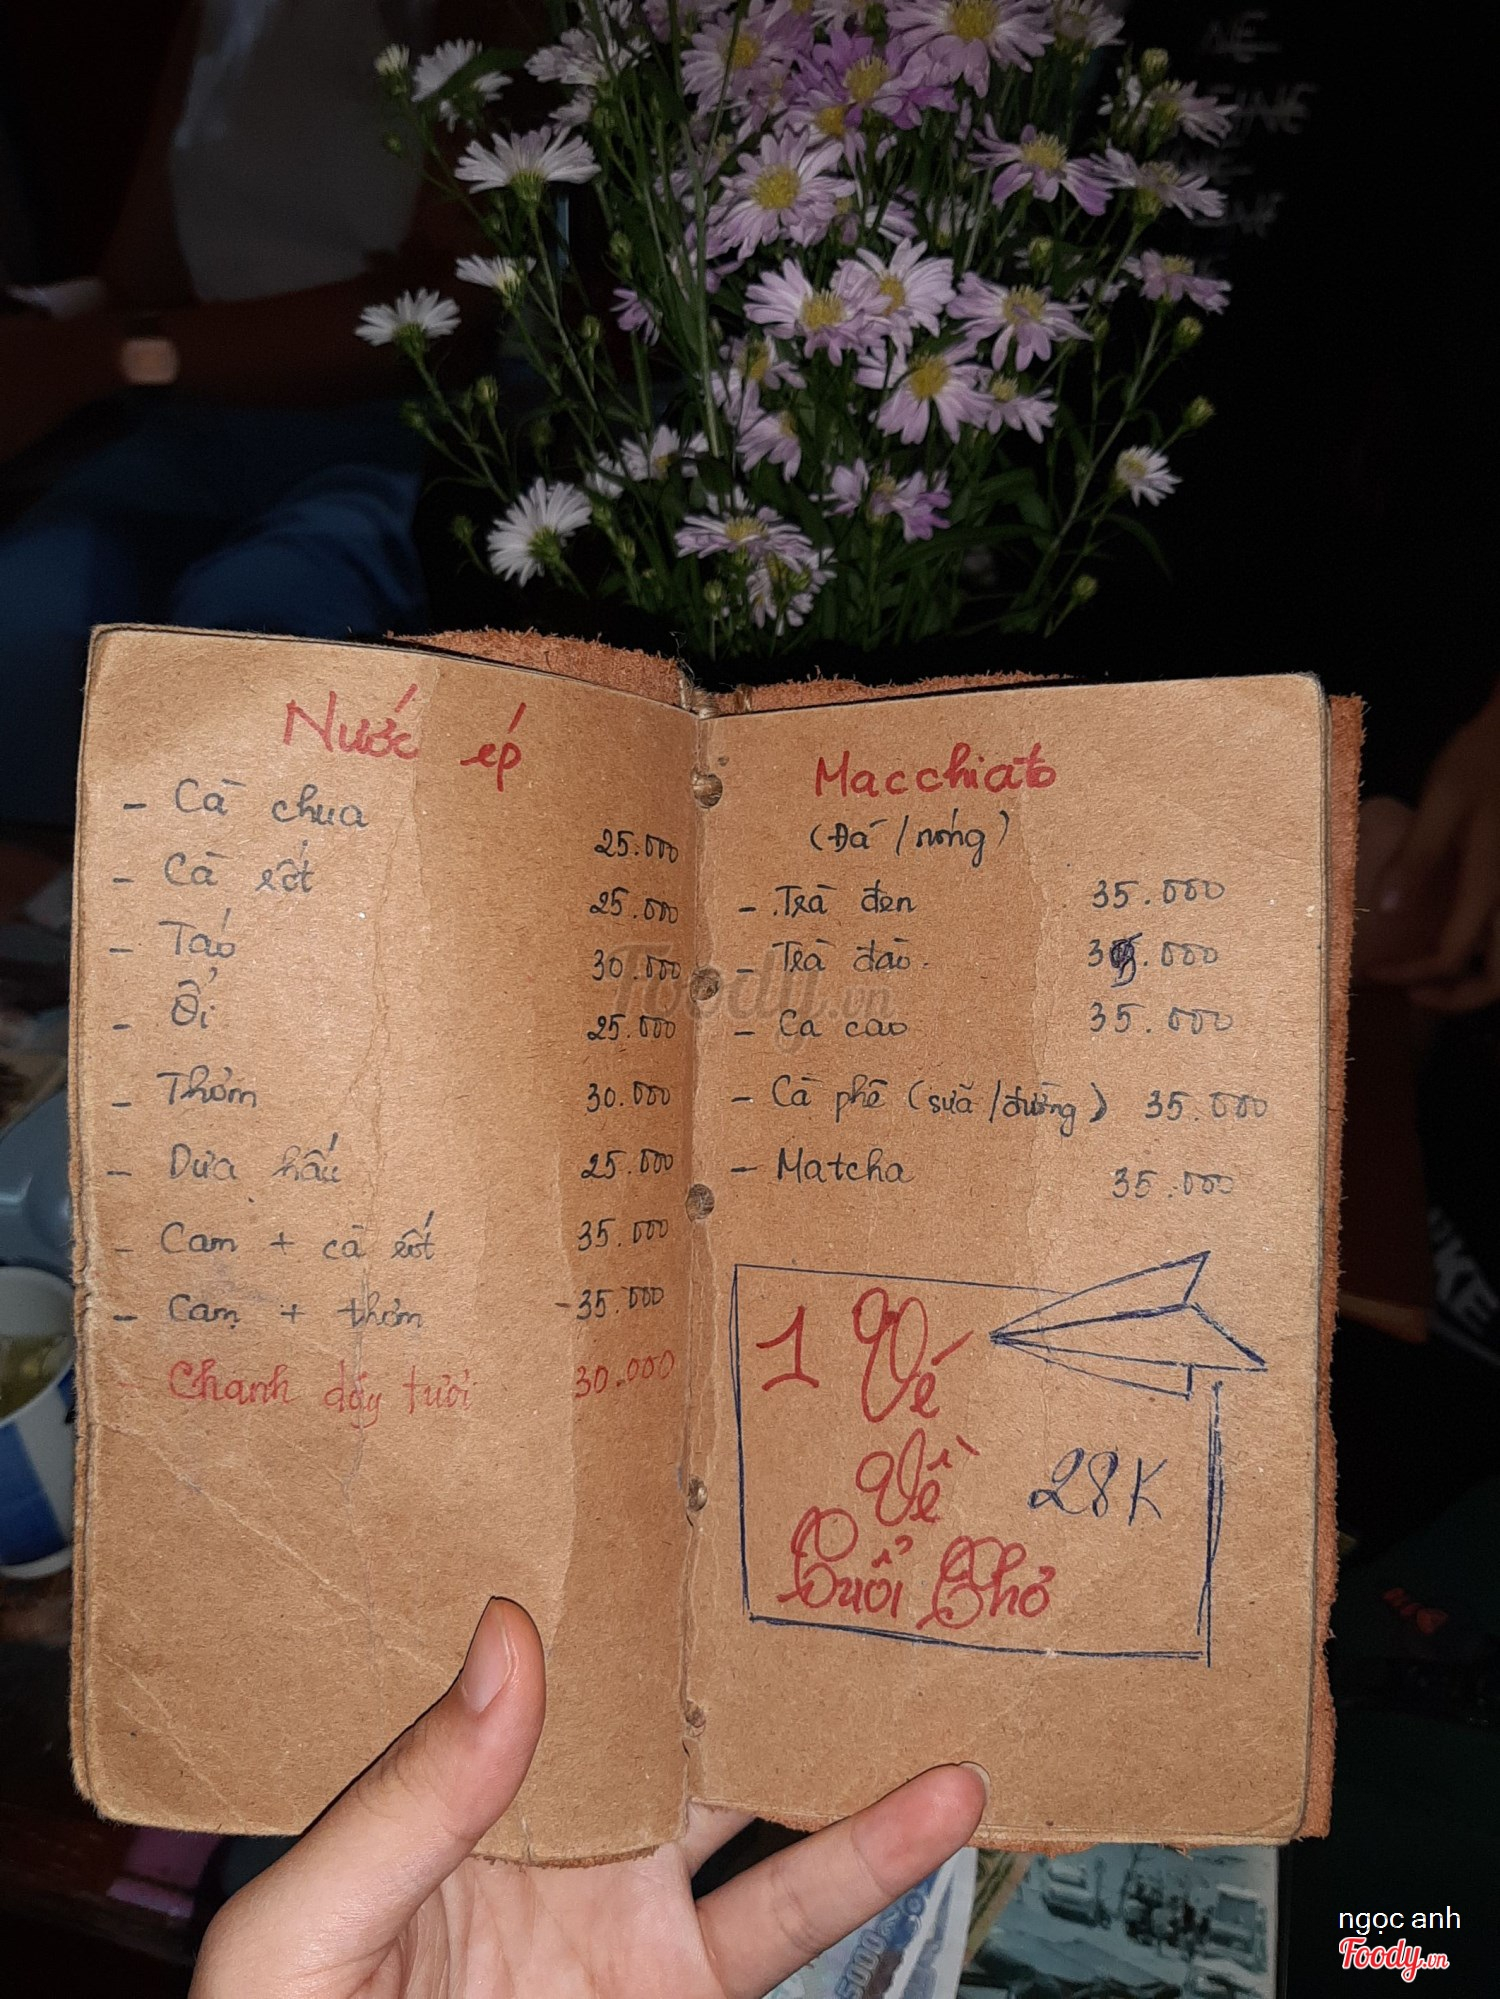 Nước ép
- Cà chua 25.000
- Cà rốt 25.000
- Táo 30.000
- Ổi 25.000
- Thơm 30.000
- Dưa hấu 25.000
- Cam + cà rốt 35.000
- Cam + thơm 35.000
- Chanh dây tươi 30.000
Macchiato
(Đá / nóng)
- Trà đen 35.000
- Trà đào 35.000
- Ca cao 35.000
- Cà phê (sữa / đường) 35.000
- Matcha 35.000
1 Vé
Về 28K
Tuổi Thơ
Foody.vn
5000
ngọc anh
Foody.vn